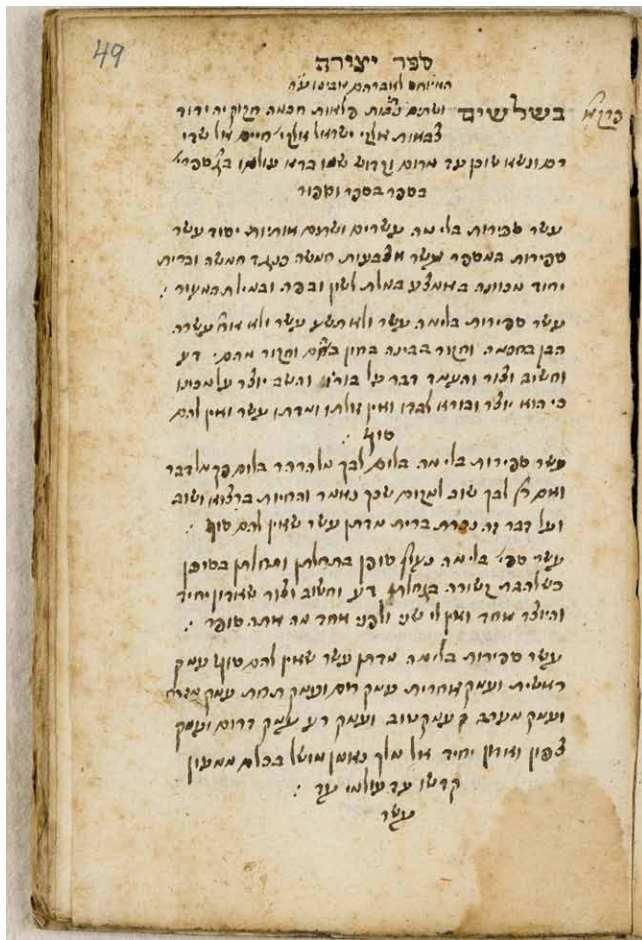 49
ספר יצירה
המיוחס לאברהם אבינו ע״ה
פרק א׳ בשלשים ושתים נתיבות פלאות חכמה חקוק יה ידוד
צבאות אלקי ישראל אלקי׳ חיים אל שדי
רם ונשא שוכן עד מרום וקדוש שמו ברא עולמו בג׳ ספרי׳
בספר בספר וספור
עשר ספירות בלי מה עשרים ושתים אותיות יסוד עשר
ספירות במספר עשר אצבעות חמשה כנגד חמשה וברית
יחוד מכוונה באמצע במלת לשון ובפה ובמילת המעור :
עשר ספירות בלימה עשר ולא תשע עשר ולא אח״ עשרה
הבן בחכמה וחכור בבינה בחון בהם וחקור מהם דע
וחשוב וצור והעמד דבר על בוריו והשב יוצר על מכונו
כי הוא יוצר ובורא לבדו ואין זולתו ומדתו עשר ואין להם
סוף :
עשר ספירות בלי מה בלום לבך מלהרהר בלום פיך מלדבר
ואם רץ לבך שוב למקום שכך נאמר והחיות ברצוא ושוב
ועל דבר זה נכרת ברית מדתן עשר שאין להם סוף :
עשר ספי׳ בלי מה נעוץ סופן בתחלתן ותחלתן בסופן
כשלהבת קשורה בגחלת דע וחשוב וצור שאדון יחיד
והיוצר אחד ואין לו שני ולפני אחד מה אתה סופר :
עשר ספירות בלימה מדתן עשר שאין להם סוף עמק
ראשית ועמק אחרית עמק רום ועמק תחת עמק מזרח
ועמק מערב עמק טוב ועמק רע עמק דרום ועמק
צפון ואדון יחיד אל מלך נאמן מושל בכלם ממעון
קדשו עד עולמי עד :
עשר